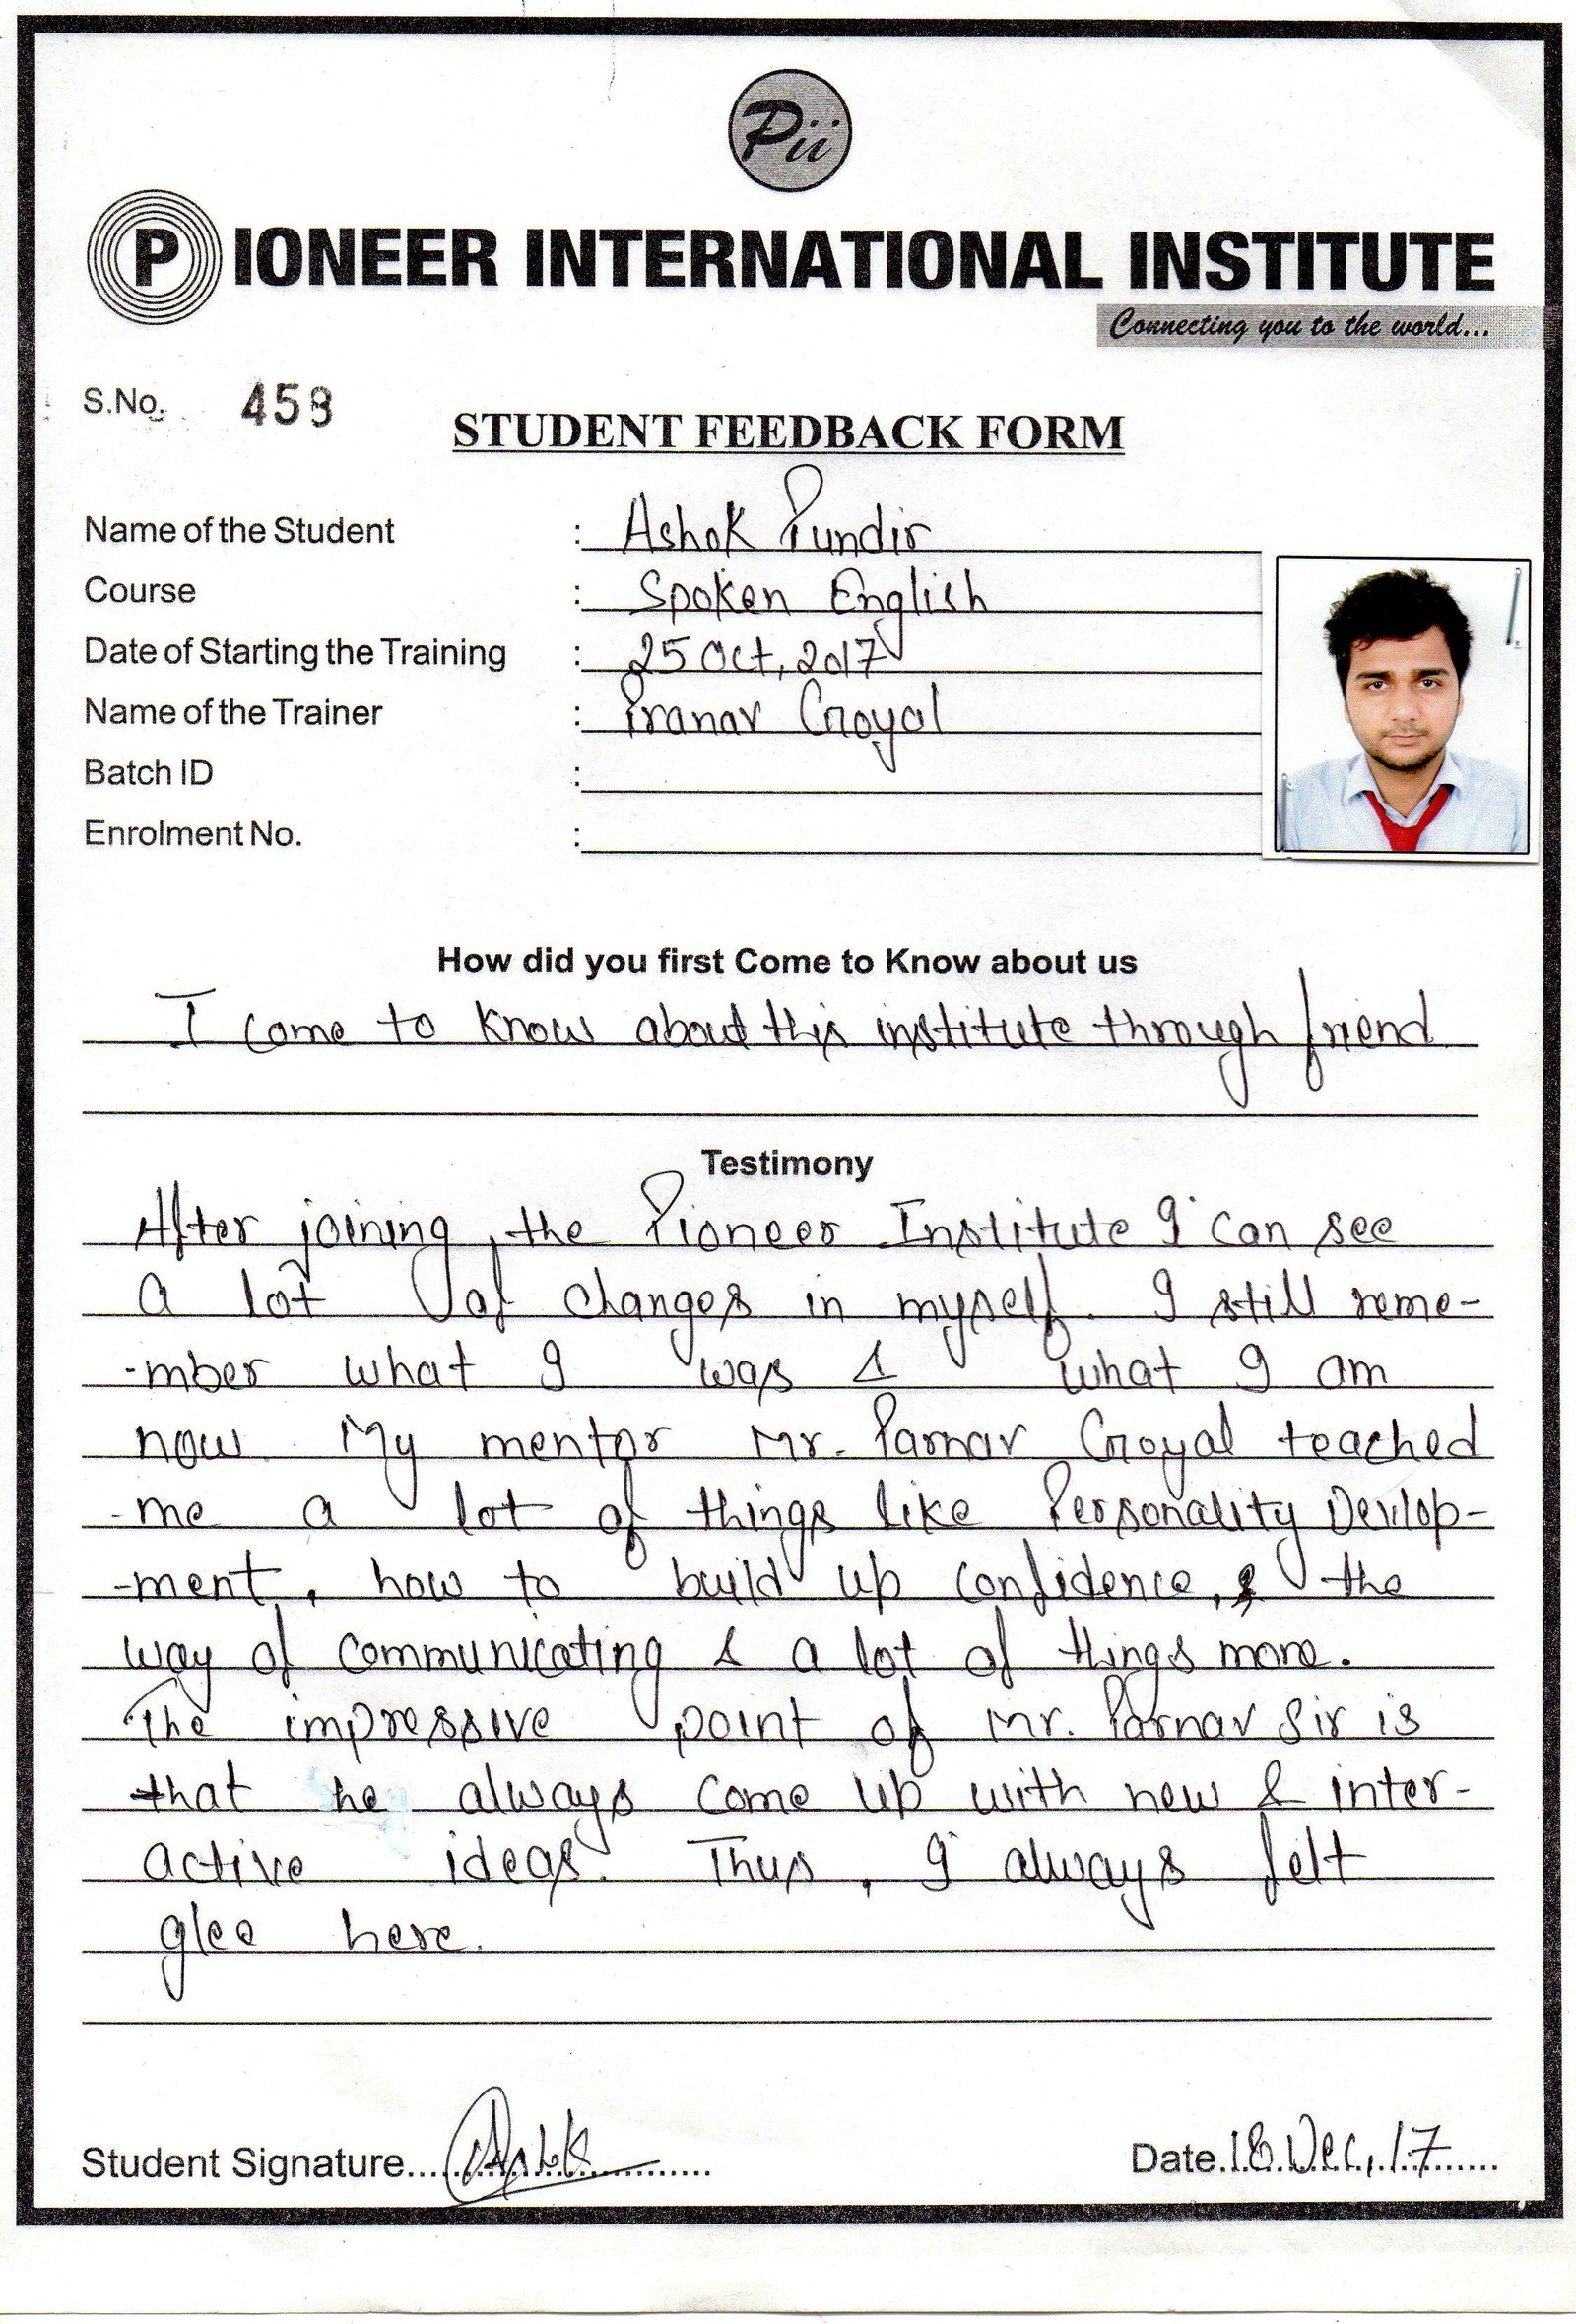 Pii
PIONEER INTERNATIONAL INSTITUTE
Connecting you to the world...
S.No. 459
STUDENT FEEDBACK FORM
Name of the Student : Ashok Pundir
Course : Spoken English
Date of Starting the Training : 25 Oct, 2017
Name of the Trainer : Pranav Goyal
Batch ID :
Enrolment No. :
How did you first Come to Know about us
I come to know about this institute through friend
Testimony
After joining, the Pioneer Institute I can see
a lot of changes in myself. I still reme-
-mber what I was & what I am
now. My mentor Mr. Parnav Goyal teached
-me a lot of things like Personality Devlop-
-ment, how to build up confidence, & the
way of communicating & a lot of things more.
The impressive point of Mr. Parnav Sir is
that he always come up with new & inter-
active ideas. Thus, I always felt
glee here.
Student Signature.......Ashok.......
Date.18 Dec, 17.......